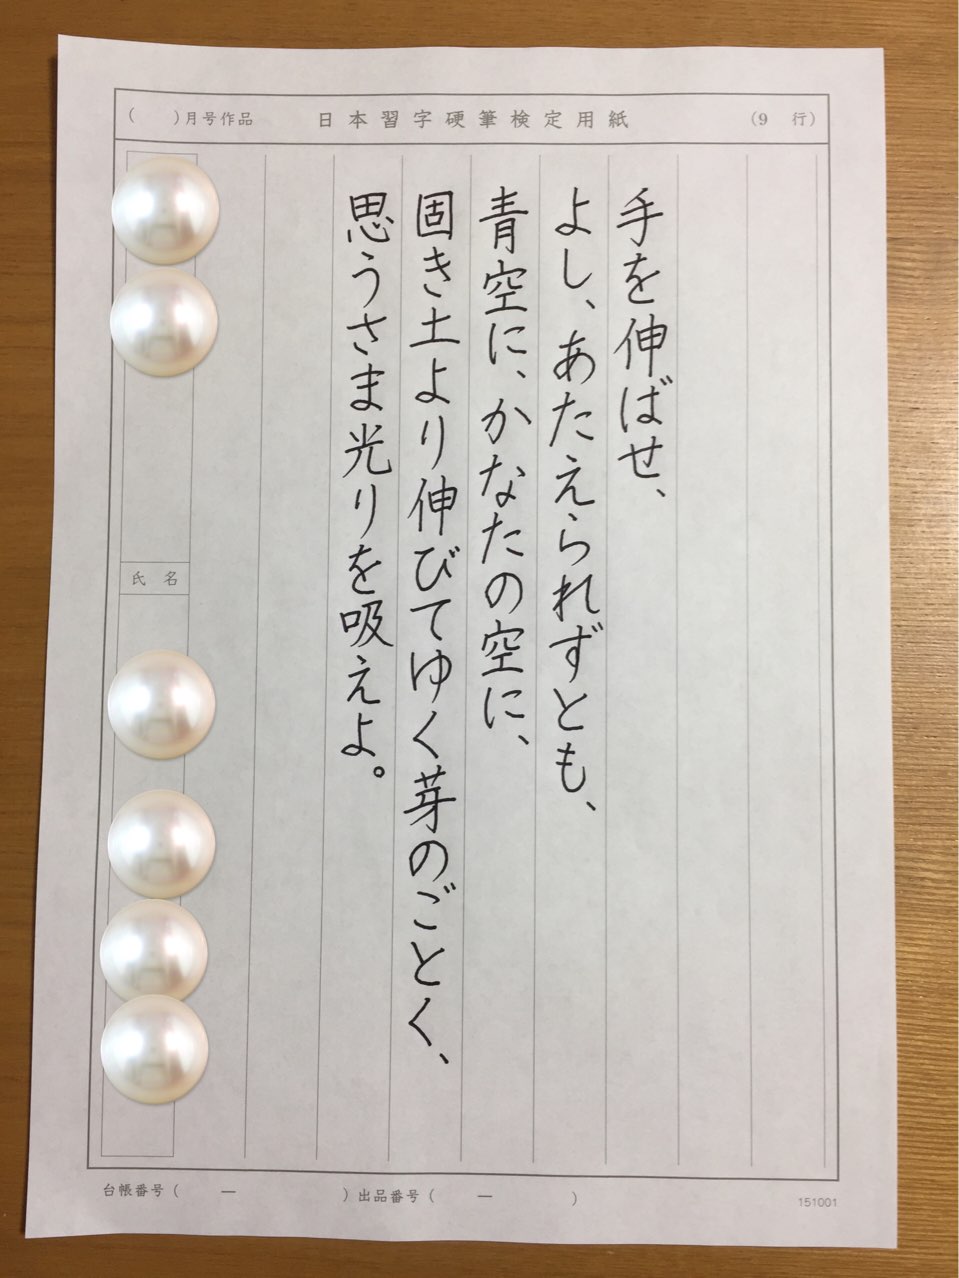 ( )月号作品 日本習字硬筆検定用紙 (9 行)
手を伸ばせ、
よし、あたえられずとも、
青空に、かなたの空に、
固き土より伸びてゆく芽のごとく、
思うさま光りを吸えよ。
氏名
台帳番号( ー )出品番号( ー )
151001